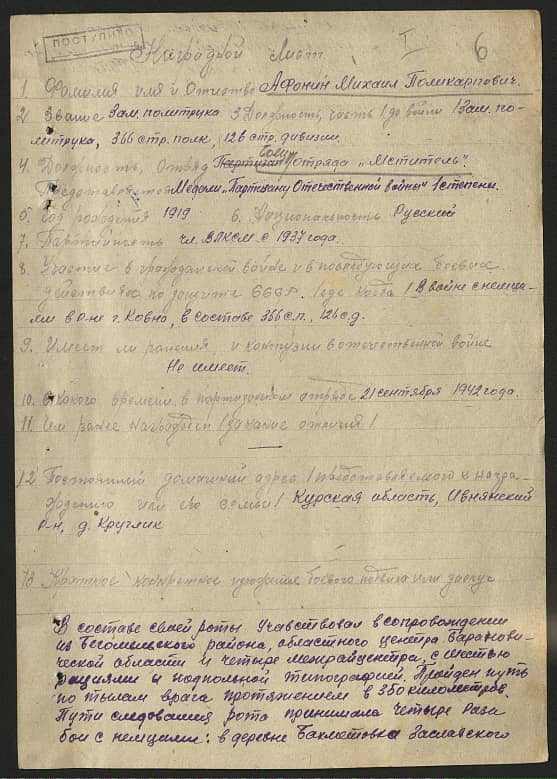 ПОСТУПИЛО
Наградной Лист I 6
1. Фамилия имя и Отчество Афонин Михаил Поликарпович.
2. Звание Зам. политрука 3 Должность, часть / до войны / Зам. по-
литрука, 366 стр. полк, 126 стр. дивизии.
4. Должность, Отряд Партизан боец отряда „Мститель".
Представляется Медали „Партизану Отечественной войны" 1 степени.
5. Год рождения 1919 6. Национальность Русский
7. Партийность чл. ВЛКСМ с 1937 года.
8. Участие в гражданской войне и в последующих боевых
действиях по защите СССР. / где когда / В войне с немца-
ми в р-не г. Ковно, в составе 366 с.п., 126 с.д.
9. Имеет ли ранения и контузии в отечественной войне
Не имеет.
10. С какого времени в партизанском отряде 21 сентября 1942 года.
11. Чем ранее награжден / за какие отличия /
12 Постоянный домашний адрес / представляемого к награ-
ждению или его семьи / Курская область, Ивнянский
р-н, д. Круглик
13 Краткое конкретное изложение боевого подвига или заслуг
В составе своей роты участвовал в сопровождении
из Бегомльского района, областного центра Баранови-
ческой области и четыре межрайцентра, с шестью
рациями и подпольной типографией. Пройден путь
по тылам врага протяжением в 350 километров.
Пути следования рота принимала четыре раза
бои с немцами: в деревне Бахметовка Заславского